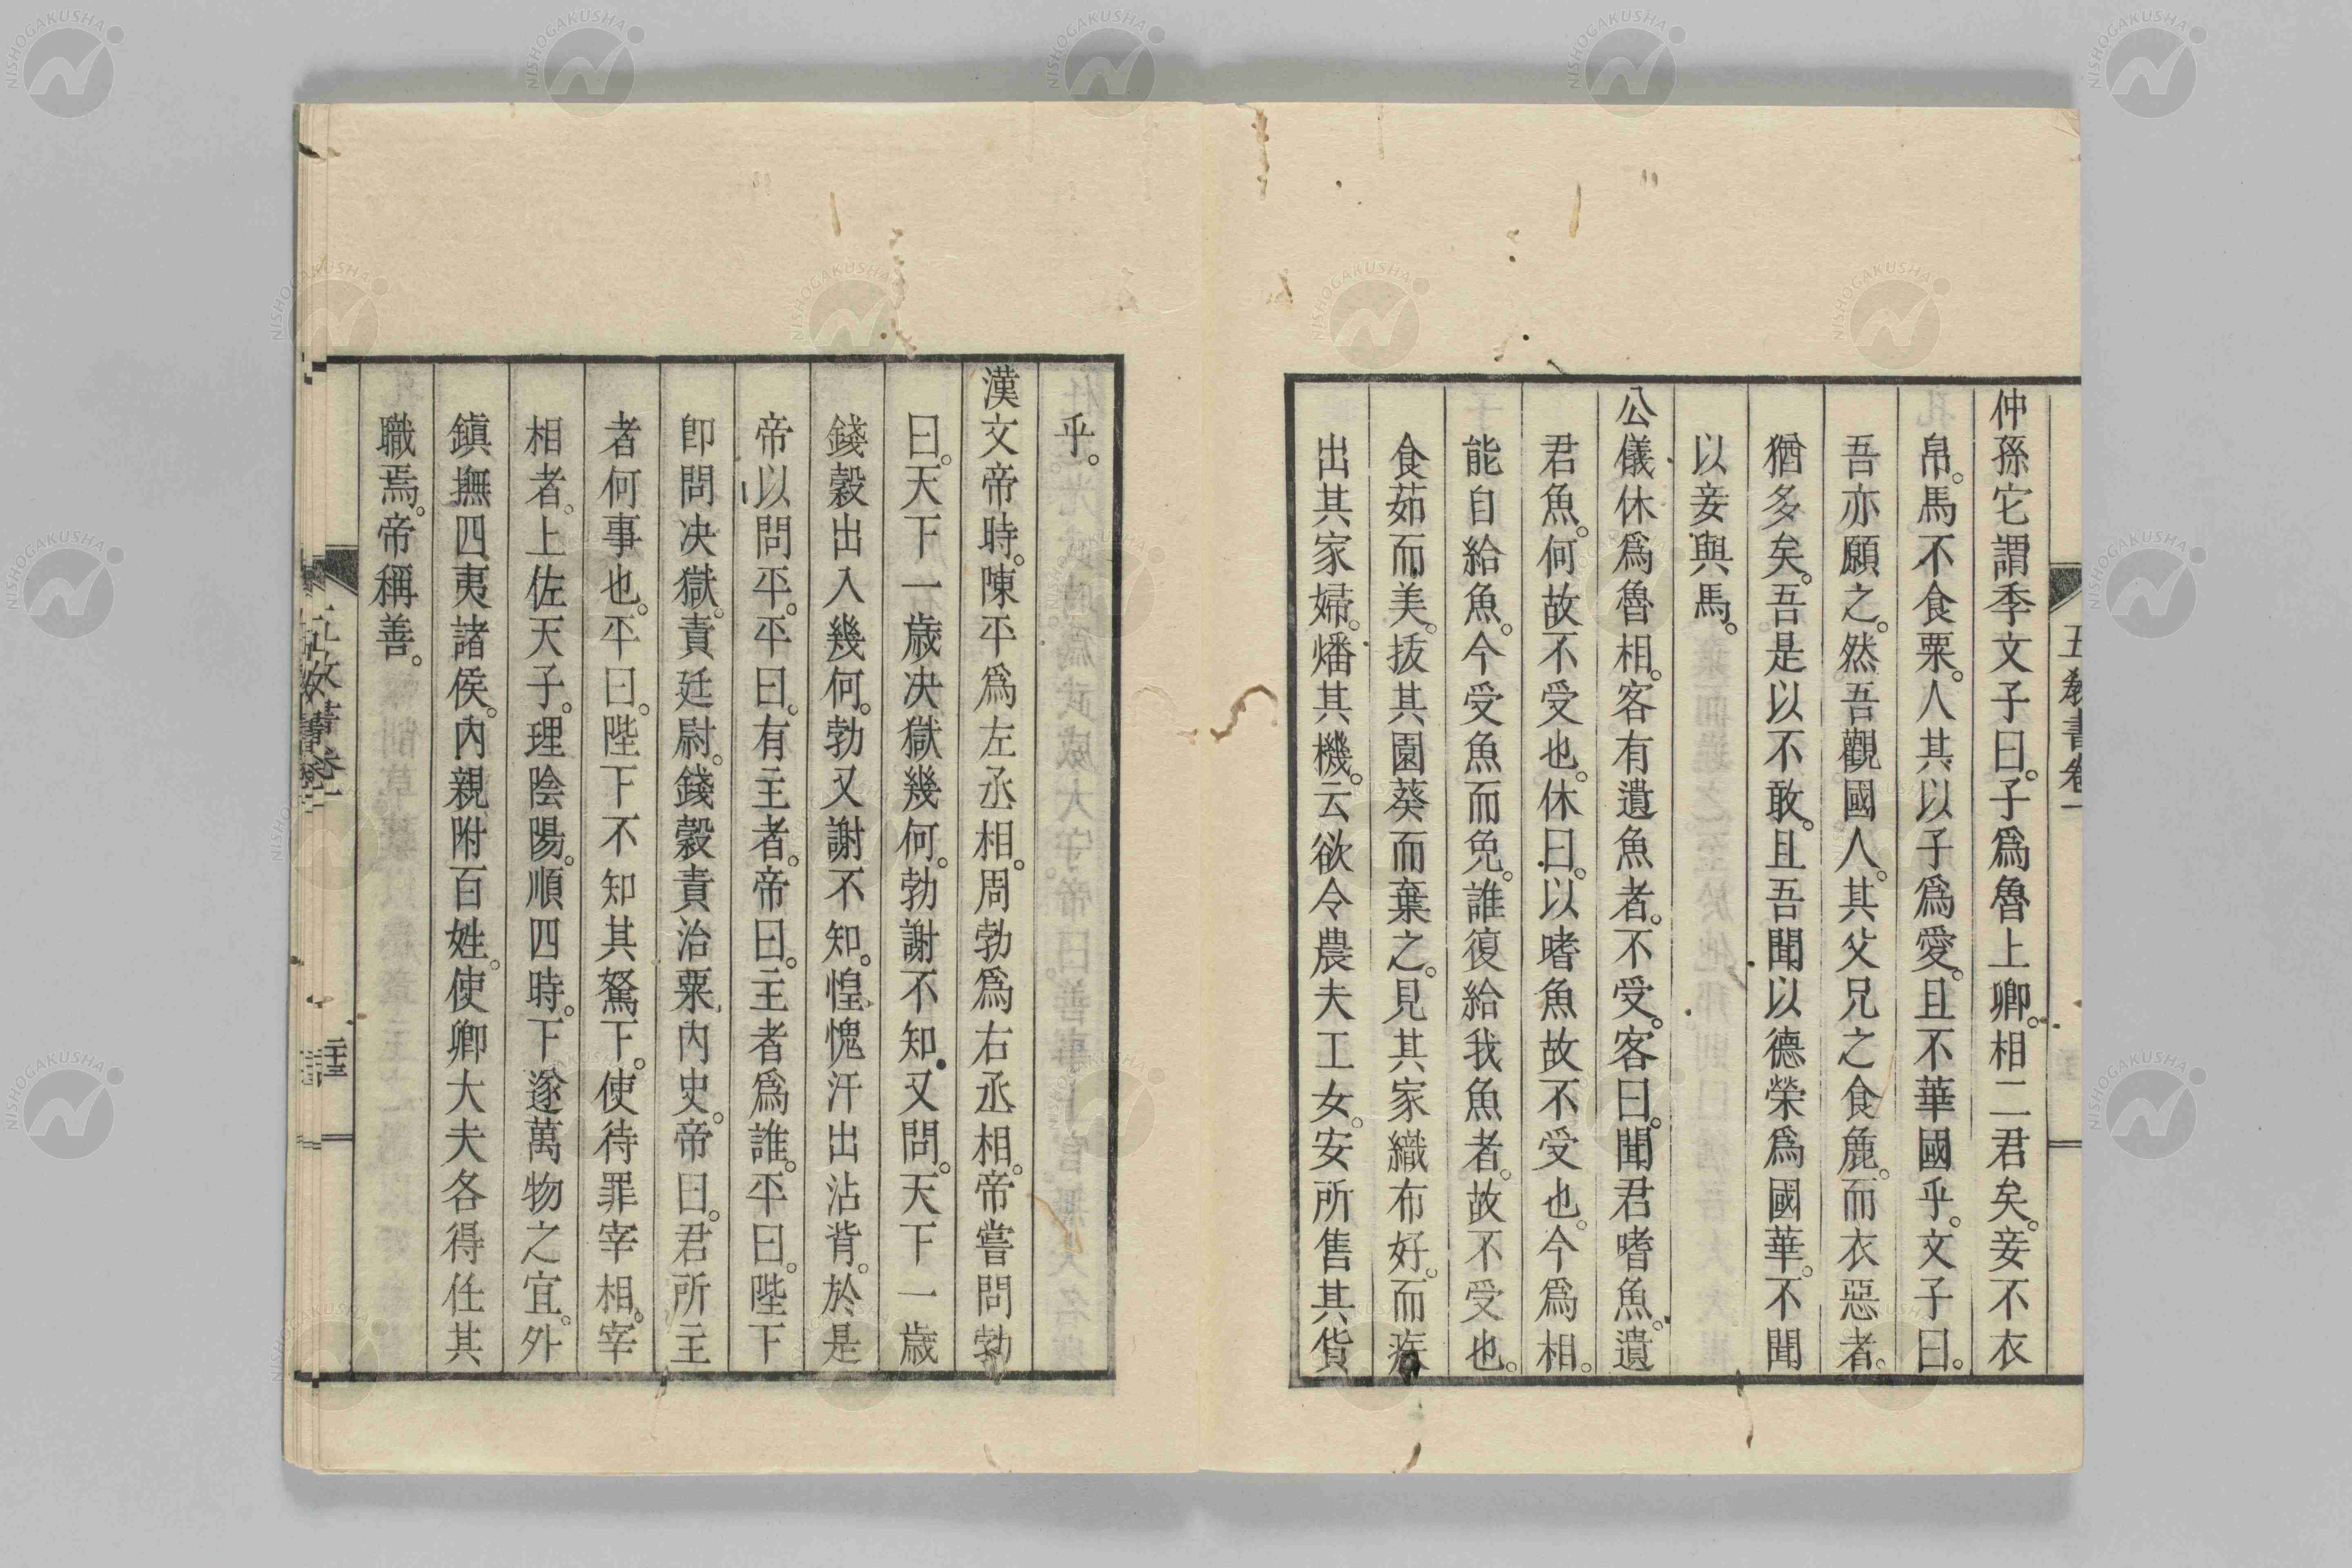 五教書卷一
仲孫它謂季文子曰。子爲魯上卿。相二君矣。妾不衣
帛。馬不食粟。人其以子爲愛。且不華國乎。文子曰。
吾亦願之。然吾觀國人。其父兄之食麁。而衣惡者。
猶多矣。吾是以不敢。且吾聞以德榮爲國華。不聞
以妾與馬。
公儀休爲魯相。客有遺魚者。不受。客曰。聞君嗜魚。遺
君魚。何故不受也。休曰。以嗜魚故不受也。今爲相。
能自給魚。今受魚而免。誰復給我魚者。故不受也。
食茹而美。拔其園葵而棄之。見其家織布好。而疾
出其家婦。燔其機。云欲令農夫工女。安所售其貨
乎。
漢文帝時。陳平爲左丞相。周勃爲右丞相。帝嘗問勃
曰。天下一歲決獄幾何。勃謝不知。又問。天下一歲
錢穀出入幾何。勃又謝不知。惶愧汗出沾背。於是
帝以問平。平曰。有主者。帝曰。主者爲誰。平曰。陛下
卽問決獄。責廷尉。錢穀責治粟內史。帝曰。君所主
者何事也。平曰。陛下不知其駑下。使待罪宰相。宰
相者。上佐天子。理陰陽。順四時。下遂萬物之宜。外
鎮撫四夷諸侯。內親附百姓。使卿大夫各得任其
職焉。帝稱善。
NISHOGAKUSHA